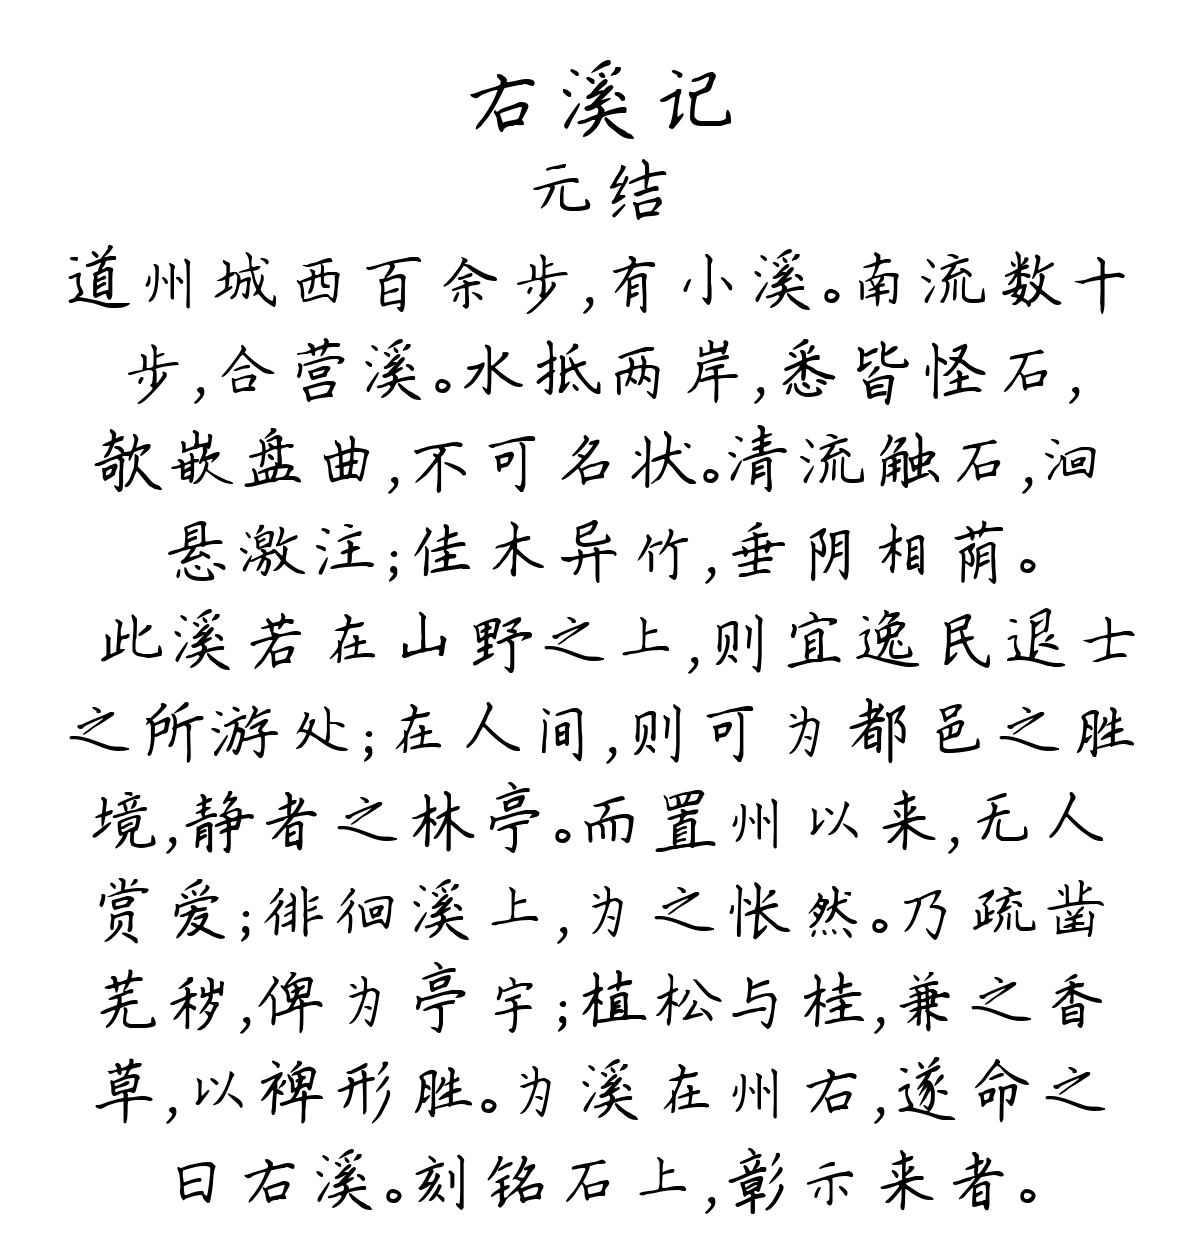 右溪记
元结
道州城西百余步,有小溪。南流数十
步,合营溪。水抵两岸,悉皆怪石,
欹嵌盘曲,不可名状。清流触石,洄
悬激注;佳木异竹,垂阴相荫。
此溪若在山野之上,则宜逸民退士
之所游处;在人间,则可为都邑之胜
境,静者之林亭。而置州以来,无人
赏爱;徘徊溪上,为之怅然。乃疏凿
芜秽,俾为亭宇;植松与桂,兼之香
草,以裨形胜。为溪在州右,遂命之
曰右溪。刻铭石上,彰示来者。